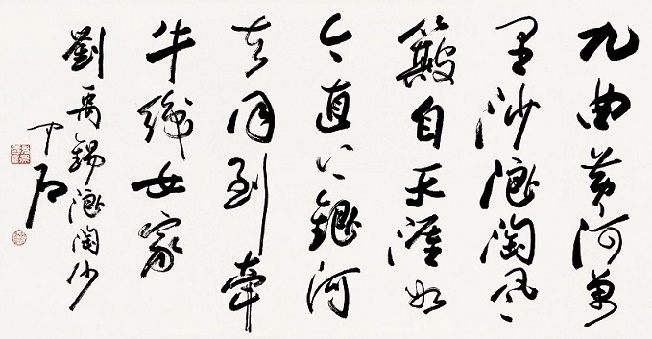 九曲黄河萬
里沙浪淘風
簸自天涯如
今直上銀河
去同到牽
牛織女家
劉禹錫浪淘沙
中石